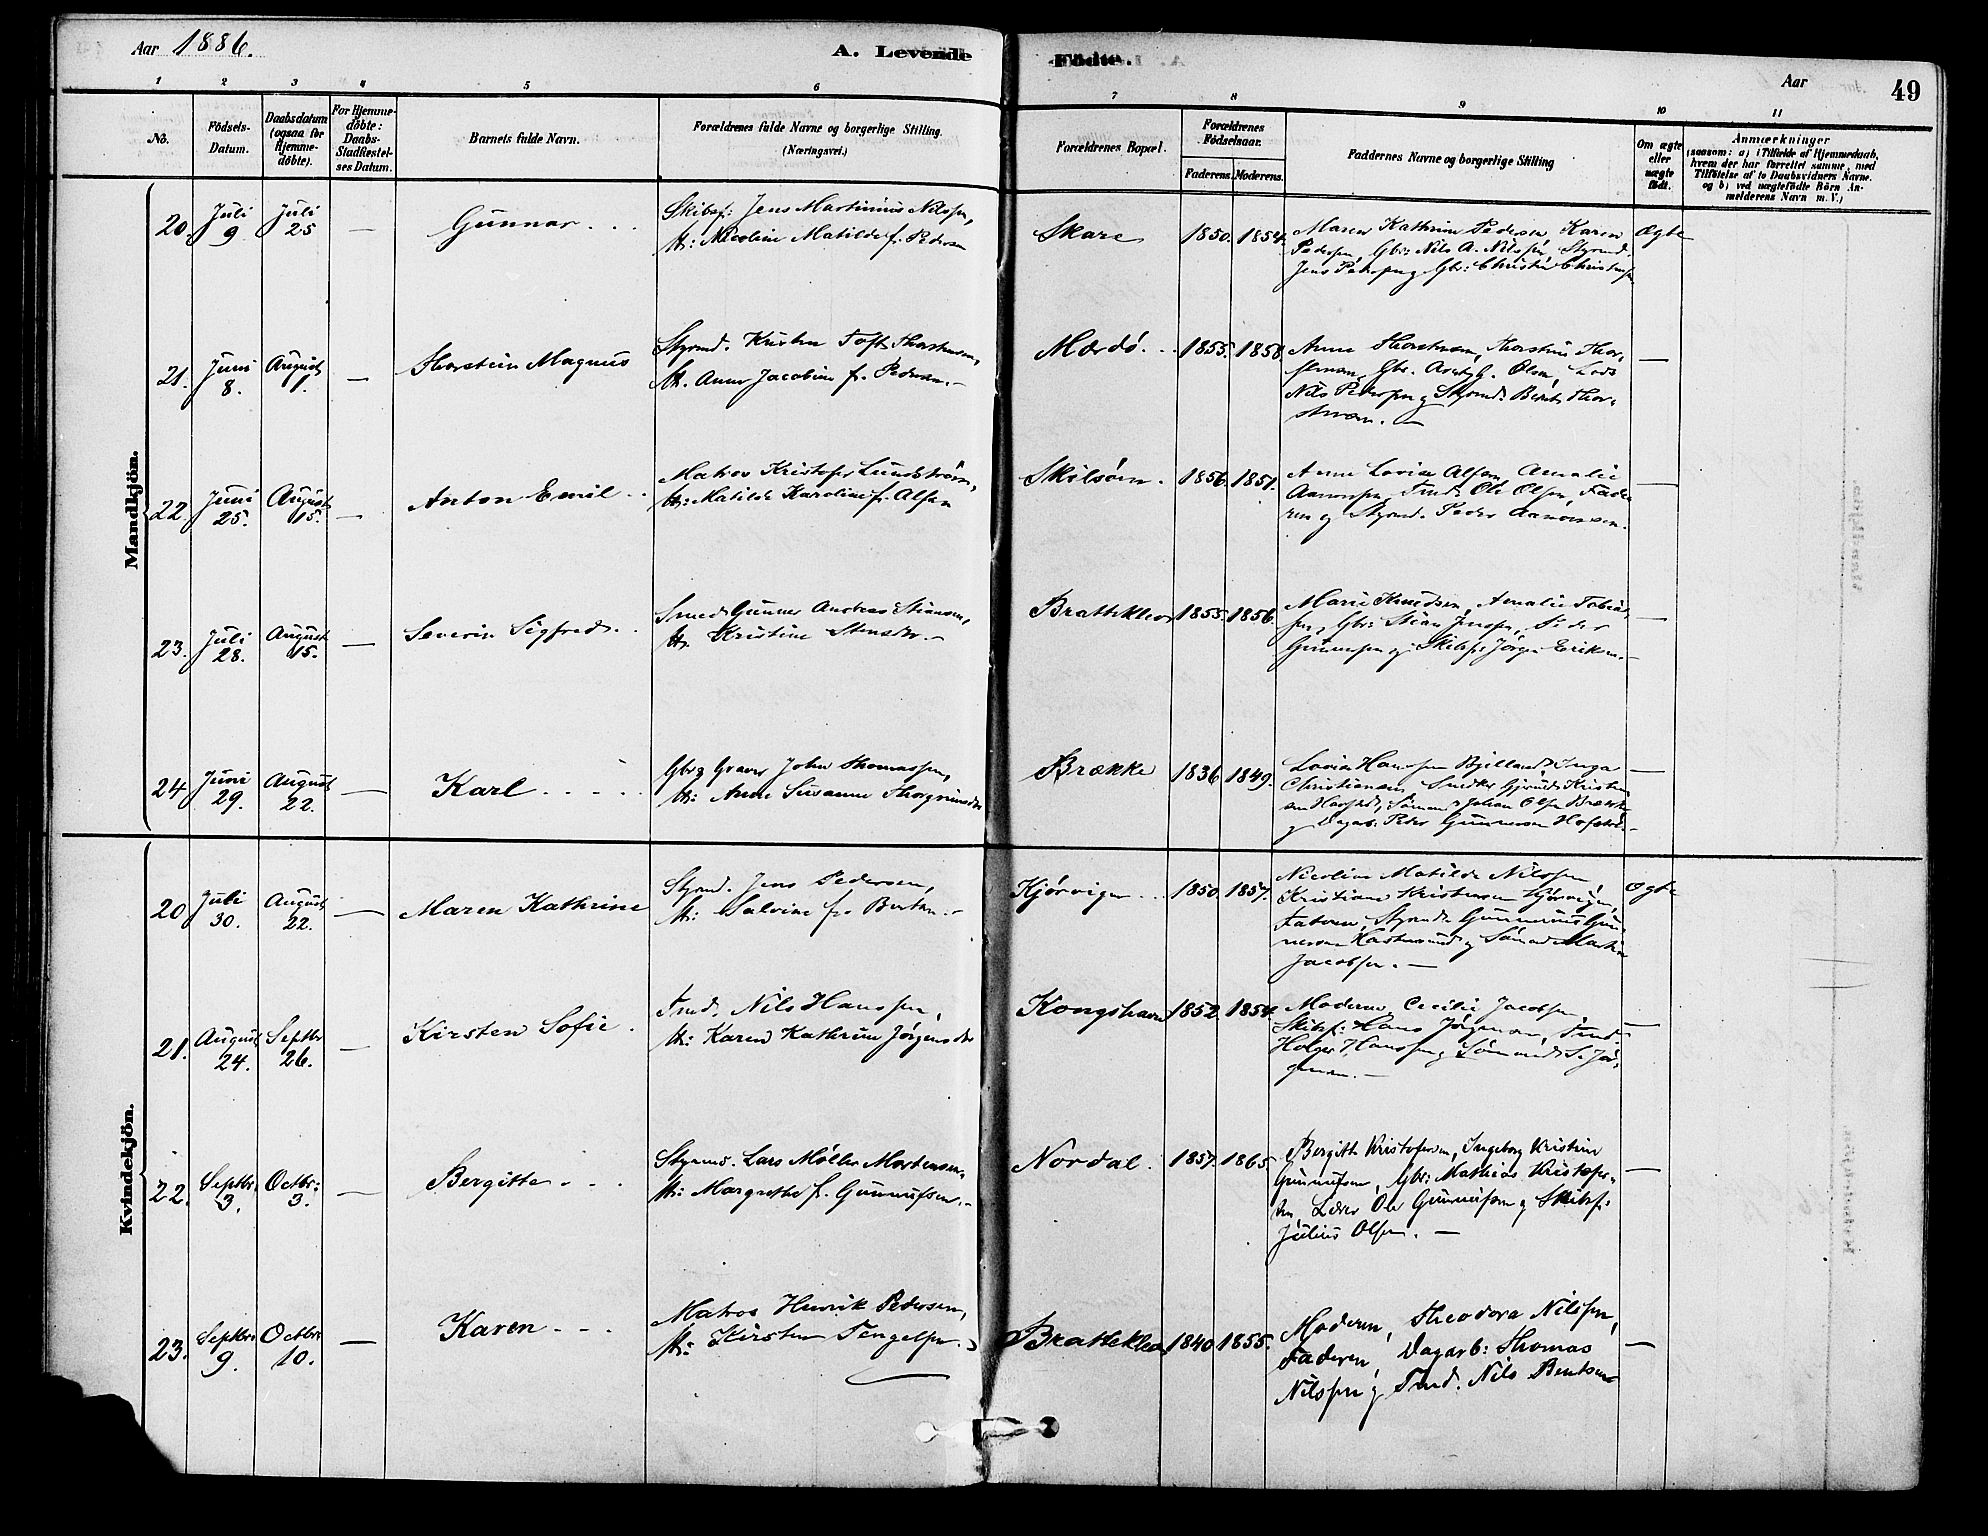 Aar 1886.
A. Levende Födte.
Aar
49
1 2 3 4 5 6 7 8 9 10 11
No.
Födsels-Datum.
Daabsdatum (ogsaa for Hjemme-döbte).
For Hjemme-döbte: Daabs-Stadfæstel-ses Datum.
Barnets fulde Navn.
Forældrenes fulde Navne og borgerlige Stilling. (Næringsvei.)
Forældrenes Bopæl.
Forældrenes Födselsaar.
Faderens. Moderens.
Faddernes Navne og borgerlige Stilling
Om ægte eller uægte födt.
Anmærkninger
(saasom: a) i Tilfælde af Hjemmedaab, hvem der har forrettet samme, med Tilföielse af to Daabsvidners Navne. og b) ved uægtefödte Börn An-melderens Navn m. V.)
Mandkjön.
20. Juli 9 Juli 25 — Gunnar
Skibsf: Jens Martinius Nilssen,
H: Nicoline Matilde f. Pedersen
Skare 1850. 1854.
Maren Kathrine Pedersen, Karen
Pedersen, Gbr: Nils A. Nilssen, Styrmd.
Jens Pedersen og Gbr: Christen Christensen
Ægte
21. Juni 8. August 1. — Thorstein Magnus
Styrmd. Kristen Toft Thorstensen,
H. Anne Jacobine f. Pedersen.—
Mærdö. 1855. 1858.
Anne Thorstensen, Thorstine Thor-
stensen, Gbr. Olsen, Lods
Nils Pedersen og Styrmd: Bernt Thor-
stensen.—
—
22. Juni 25. August 15. — Anton Emil
Matros Kristofer Lundström,
H: Matilde Karoline f. Olsen
Skilsöen. 1856. 1851.
Anne Lovise Olsen, Amalie
Aanonsen, Tmd. Ole Olsen, Fade-
ren og Styrmd. Peder Aanonsen.
—
23. Juli 28. August 15. — Severin Sigfred
Smed Gunner Andreas Stiansen,
H. Kristine Stensdtr.—
Brattekleiv 1855. 1856.
Marie Knudsen, Amalie Tobias-
sen, Gbr: Stian Jenssen,
Gunnersen og Skibsf: Jörgen Eriksen.—
—
24 Juni 29. August 22. — Karl
Gbr og Graver John Thomassen,
H: Anne Susanne Thorgrimsdtr
Brække 1836 1849.
Lovise Hanssen Bjelland, Inga
Christiansen, Smed Kristen-
sen Havsted, Sömand Johan Olsen Brække
og Dagarb: Peter Gunnersen Hofsted.—
—
Kvindekjön.
20 Juli 30. August 22. — Maren Kathrine
Styrmd. Jens Pedersen,
H: Salvine f. Bertsen.—
Kjörvigen 1850. 1857.
Nicoline Matilde Nilssen
Kristiane Kristensen Kjörvigen,
Faderen, Styrmd. Gunnerius Gun-
nersen og Sömand Martin
Jacobsen.—
Ægte
21. August 24. Septbr 26. — Kirsten Sofie.
Tmd. Nils Hanssen,
H: Karen Kathrine Jörgensdtr
Kongshavn 1852. 1854.
Moderen, Cecilie Jacobsen,
Skibsf: Hans Jörgensen, Tmd.
Holger Hanssen og Sömand S. Jör-
gensen.—
—
22. Septbr. 3. Octbr: 3. — Bergitte
Styrmd. Lars Möller Mortensen
H: Margrethe f. Gunnufsen.—
Nordal. 1857. 1865.
Bergith Kristofersen, Ingeborg Kristine
Gunnufsen, Gbr: Mathias Kristofer-
sen, Lærer Ole Gunnufsen og Skibsf:
Julius Olsen.—
—
23. Septbr 9. Octbr 10. — Karen
Matros Henrik Pedersen,
H: Kirsten Tengelsen.—
Brattekleiv 1840 1855.
Moderen, Theodora Nilssen,
Faderen, Dagarb: Thomas
Nilssen og Tmd. Nils Bentsen
—